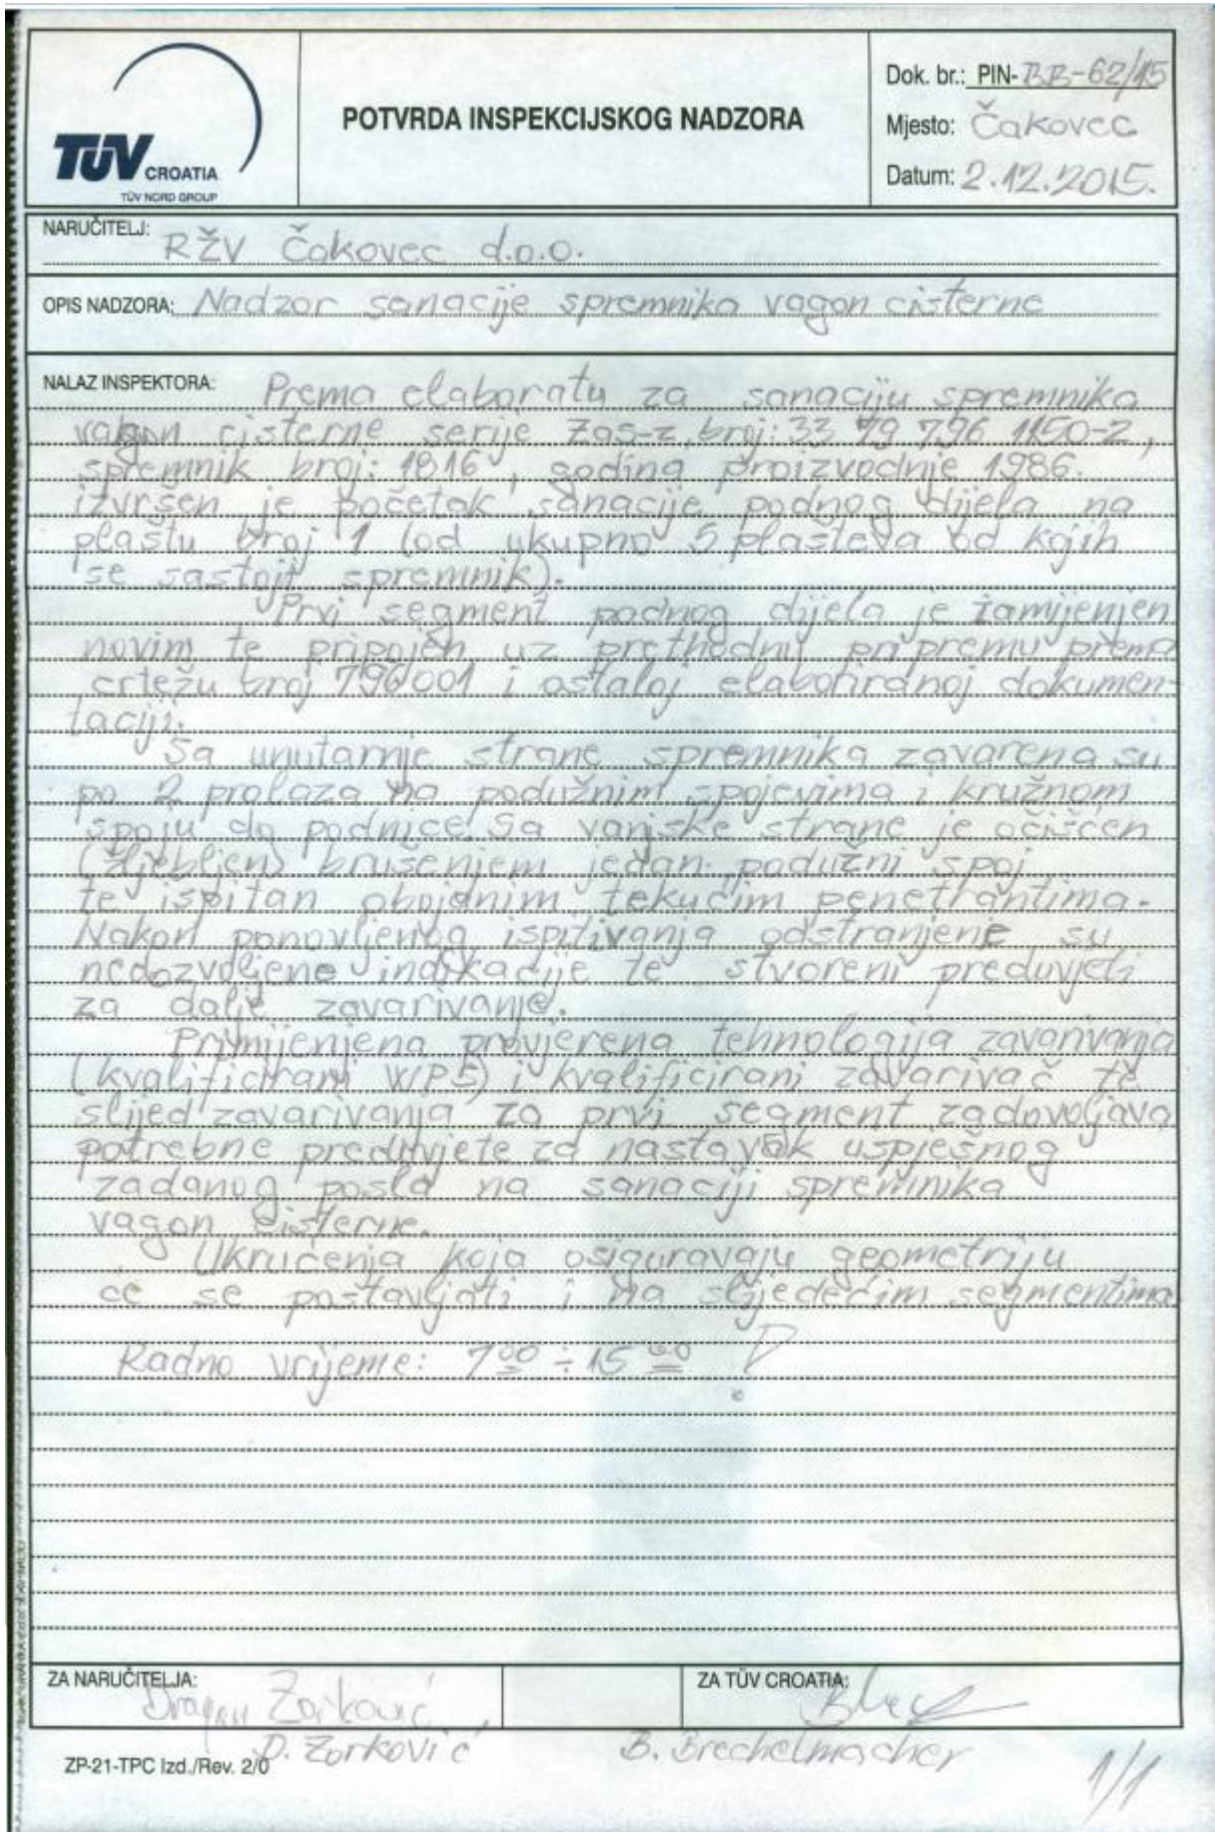 TÜV CROATIA
TÜV NORD GROUP
POTVRDA INSPEKCIJSKOG NADZORA
Dok. br.: PIN-BB-62/15
Mjesto: Čakovec
Datum: 2.12.2015.
NARUČITELJ: RŽV Čakovec d.o.o.
OPIS NADZORA: Nadzor sanacije spremnika vagon cisterne
NALAZ INSPEKTORA: Prema elaboratu za sanaciju spremnika
vagon cisterne serije Zas-z, broj: 33 79 796 1150-2,
spremnik broj: 1816, godina proizvodnje 1986.
izvršen je početak sanacije podnog dijela na
plaštu broj 1 (od ukupno 5 plašteva od kojih
se sastoji spremnik).
Prvi segment podnog dijela je zamijenjen
novim te pripojen uz prethodnu pripremu prema
crtežu broj 796001 i ostaloj elaboriranoj dokumen-
taciji.
Sa unutarnje strane spremnika zavarena su
po 2 prolaza na podužnim spojevima i kružnom
spoju do podnice. Sa vanjske strane je očišćen
(žljebljen) brušenjem jedan podužni spoj
te ispitan obojenim tekućim penetrantima.
Nakon ponovljenog ispitivanja odstranjene su
nedozvoljene indikacije te stvoreni preduvjeti
za dalje zavarivanje.
Primijenjena provjerena tehnologija zavarivanja
(kvalificirani WPS) i kvalificirani zavarivač te
slijed zavarivanja za prvi segment zadovoljava
potrebne preduvjete za nastavak uspješnog
zadanog posla na sanaciji spremnika
vagon cisterne.
Ukrućenja koja osiguravaju geometriju
će se postavljati i na slijedećim segmentima
Radno vrijeme: 7⁰⁰ ÷ 15⁰⁰ !
ZA NARUČITELJA: Dragan Zorković
ZA TÜV CROATIA:
D. Zorković
B. Brechelmacher
ZP-21-TPC Izd./Rev. 2/0
1/1